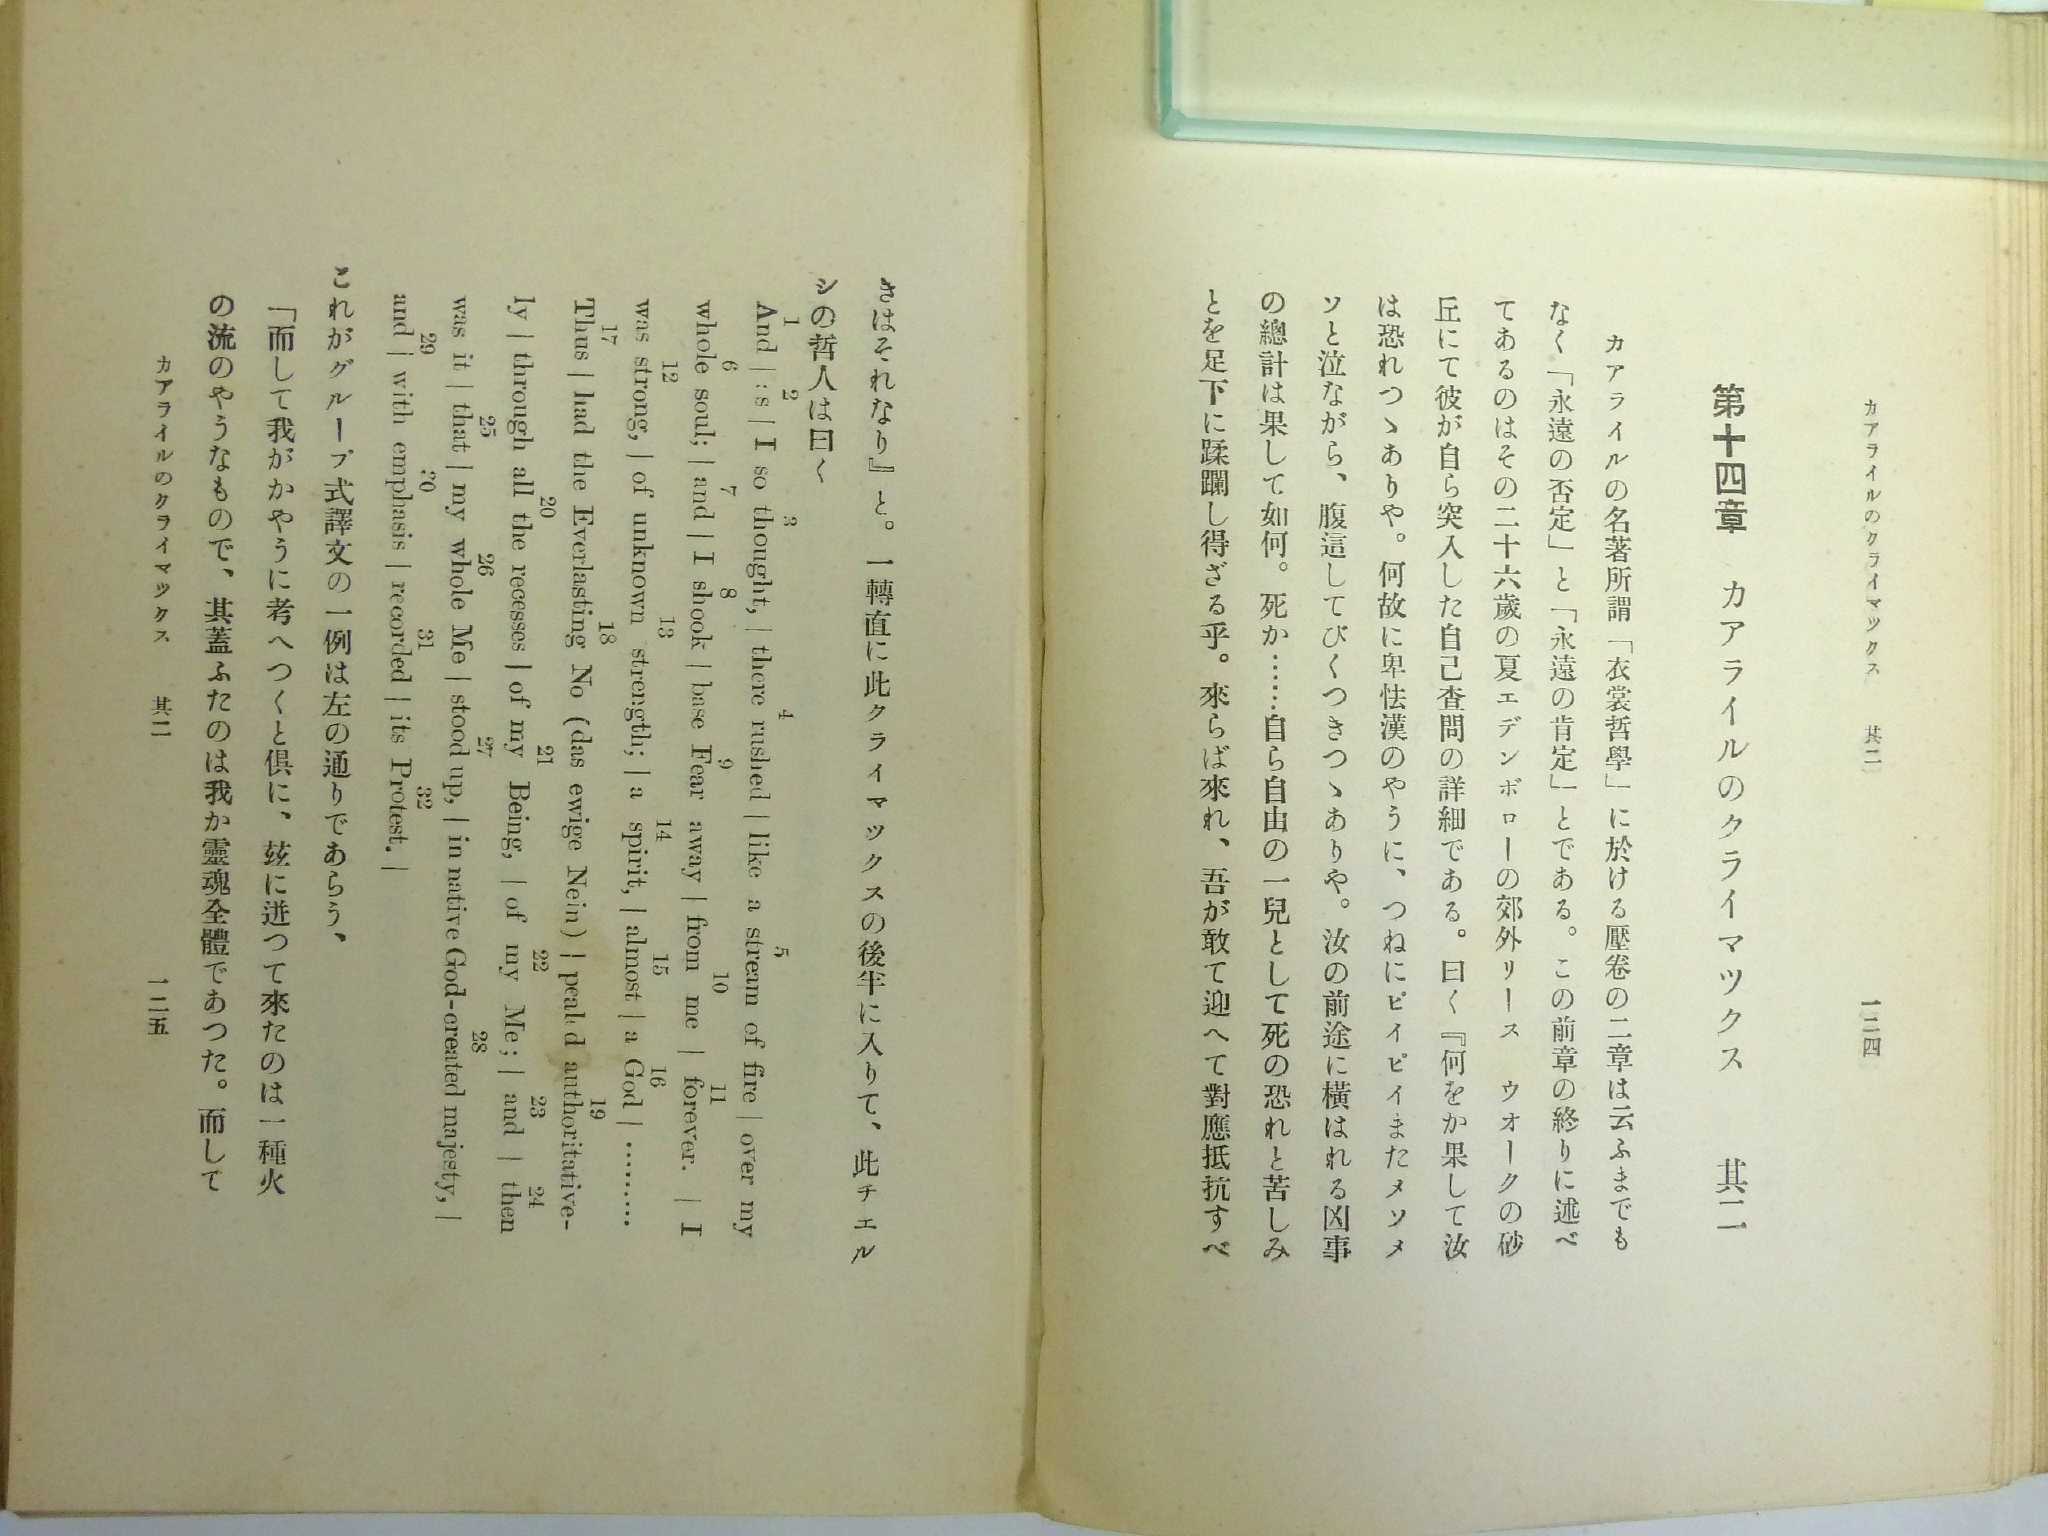 カアライルのクライマックス　其二
一二四
第十四章　カアライルのクライマツクス　其二
カアライルの名著所謂「衣裳哲學」に於ける壓卷の二章は云ふまでも
なく「永遠の否定」と「永遠の肯定」とである。この前章の終りに述べ
てあるのはその二十六歳の夏エデンボローの郊外リース　ウオークの砂
丘にて彼が自ら突入した自己査問の詳細である。曰く『何をか果して汝
は恐れつゝありや。何故に卑怯漢のやうに、つねにピイピイまたメソメ
ソと泣ながら、腹這してびくつきつゝありや。汝の前途に橫はれる凶事
の總計は果して如何。死か……自ら自由の一兒として死の恐れと苦しみ
とを足下に蹂躙し得ざる乎。來らば來れ、吾が敢て迎へて對應抵抗すべ
きはそれなり』と。一轉直に此クライマツクスの後半に入りて、此チエル
シの哲人は曰く
1 2 3 4 5
And | :s | I so thought, | there rushed | like a stream of fire | over my
6 7 8 9 10 11
whole soul; | and | I shook | base Fear away | from me | forever. | I
12 13 14 15 16
was strong, | of unknown strength; | a spirit, | almost | a God | ………
17 18 19
Thus | had the Everlasting No (das ewige Nein) | pealed authoritative-
20 21 22 23 24
ly | through all the recesses | of my Being, | of my Me; | and | then
25 26 27 28
was it | that | my whole Me | stood up, | in native God-created majesty, |
29 30 31 32
and | with emphasis | recorded | its Protest. |
これがグループ式譯文の一例は左の通りであらう、
「而して我がかやうに考へつくと倶に、玆に迸つて來たのは一種火
の流のやうなもので、其蓋ふたのは我か靈魂全體であつた。而して
カアライルのクライマツクス　其二
一二五